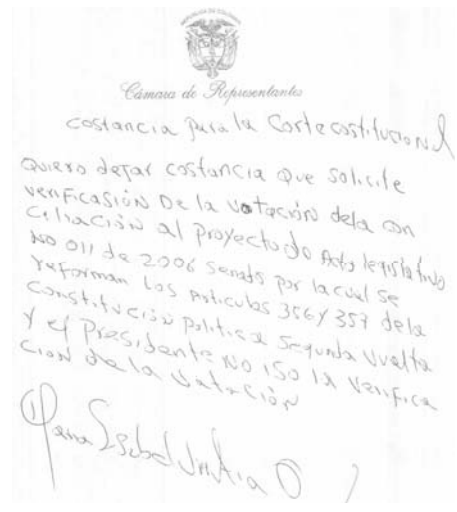 Cámara de Representantes
costancia para la Corte costitucional
Quiero dejar costancia que solicite
verificasión De la votación dela con
ciliación al proyecto do Acto legislativo
NO 011 de 2006 Senado por la cual se
reforman los Articulos 356 y 357 dela
Constitución Politica Segunda Vuelta
Y el Presidente NO iso la verifica
cion de la votación
Maria Isabel Urrutia O